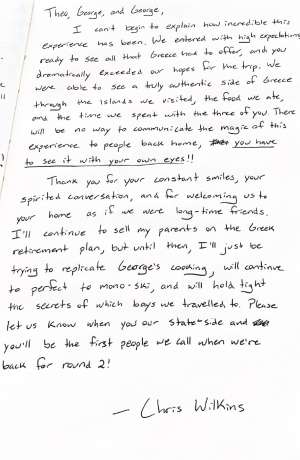 Theo, George, and George,
I can't begin to explain how incredible this
experience has been. We entered with high expectations
ready to see all that Greece had to offer, and you
dramatically exceeded our hopes for the trip. We
were able to see a truly authentic side of Greece
through the islands we visited, the food we ate,
and the time we spent with the three of you. There
will be no way to communicate the magic of this
experience to people back home, you have
to see it with your own eyes!!
Thank you for your constant smiles, your
spirited conversation, and for welcoming us to
your home as if we were long-time friends.
I'll continue to sell my parents on the Greek
retirement plan, but until then, I'll just be
trying to replicate George's cooking, will continue
to perfect to mono-ski, and will hold tight
the secrets of which bays we travelled to. Please
let us know when you our state-side and
you'll be the first people we call when we're
back for round 2!
- Chris Wilkins